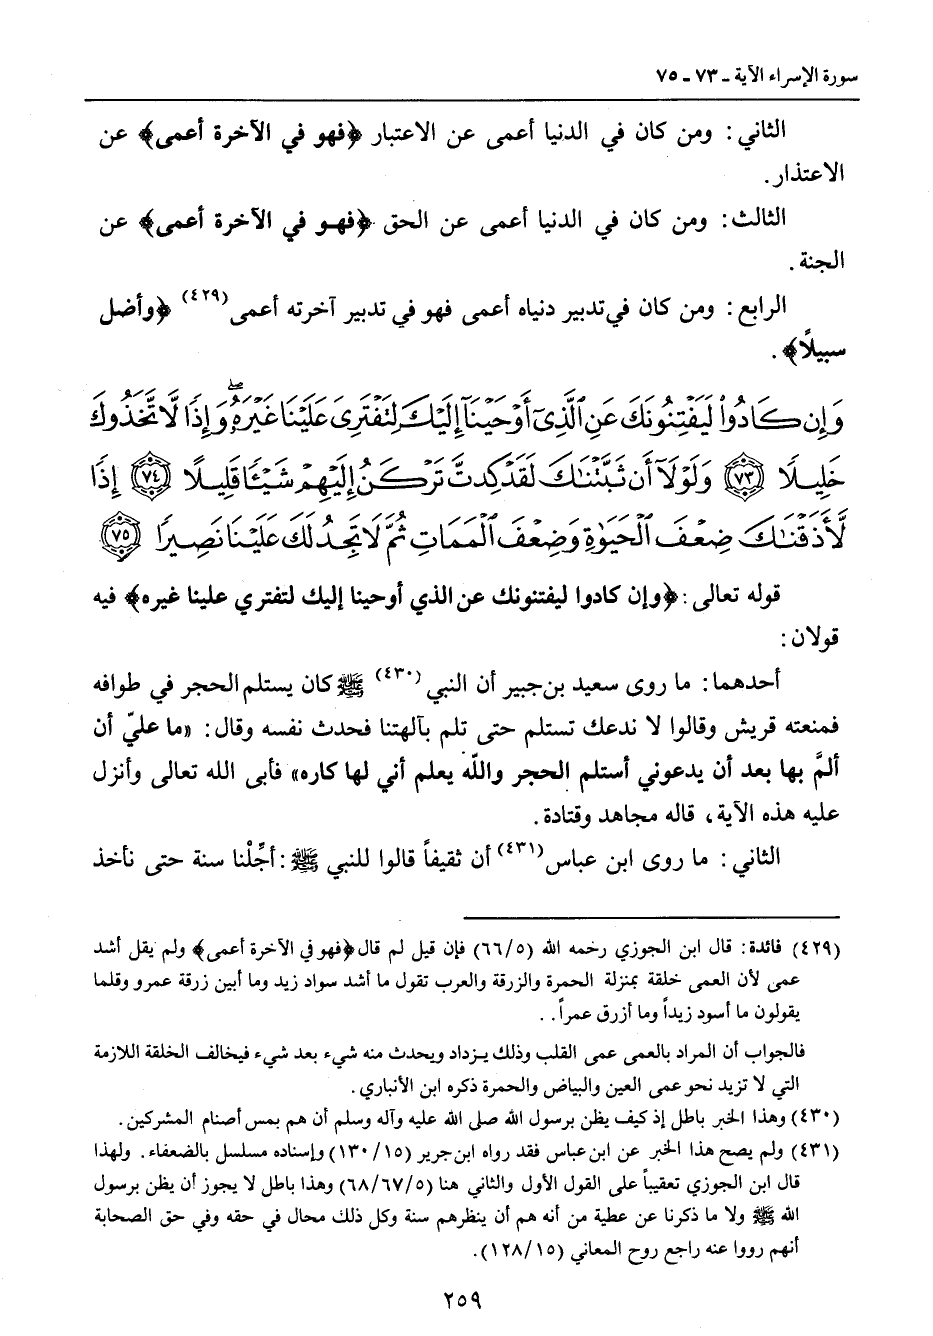 سورة الإسراء الآية ـ ٧٣ ـ ٧٥
الثاني: ومن كان في الدنيا أعمى عن الاعتبار ﴿فهو في الآخرة أعمى﴾ عن
الاعتذار.
الثالث: ومن كان في الدنيا أعمى عن الحق ﴿فهو في الآخرة أعمى﴾ عن
الجنة.
الرابع: ومن كان في تدبير دنياه أعمى فهو في تدبير آخرته أعمى(٤٢٩) ﴿وأضل
سبيلًا﴾.
وَإِن كَادُواْ لَيَفْتِنُونَكَ عَنِ ٱلَّذِىٓ أَوْحَيْنَآ إِلَيْكَ لِتَفْتَرِىَ عَلَيْنَا غَيْرَهُۥ ۖ وَإِذًا لَّٱتَّخَذُوكَ
خَلِيلًا ﴿٧٣﴾ وَلَوْلَآ أَن ثَبَّتْنَٰكَ لَقَدْ كِدتَّ تَرْكَنُ إِلَيْهِمْ شَيْـًٔا قَلِيلًا ﴿٧٤﴾ إِذًا
لَّأَذَقْنَٰكَ ضِعْفَ ٱلْحَيَوٰةِ وَضِعْفَ ٱلْمَمَاتِ ثُمَّ لَا تَجِدُ لَكَ عَلَيْنَا نَصِيرًا ﴿٧٥﴾
قوله تعالى: ﴿وإن كادوا ليفتنونك عن الذي أوحينا إليك لتفتري علينا غيره﴾ فيه
قولان:
أحدهما: ما روى سعيد بن جبير أن النبي (٤٣٠) ﷺ كان يستلم الحجر في طوافه
فمنعته قريش وقالوا لا ندعك تستلم حتى تلم بآلهتنا فحدث نفسه وقال: «ما عليّ أن
ألمَّ بها بعد أن يدعوني أستلم الحجر واللّه يعلم أني لها كاره» فأبى الله تعالى وأنزل
عليه هذه الآية، قاله مجاهد وقتادة.
الثاني: ما روى ابن عباس(٤٣١) أن ثقيفاً قالوا للنبي ﷺ: أجِّلْنا سنة حتى نأخذ
(٤٢٩) فائدة: قال ابن الجوزي رحمه الله (٦٦/٥) فإن قيل لم قال ﴿فهو في الآخرة أعمى﴾ ولم يقل أشد
عمى لأن العمى خلقة بمنزلة الحمرة والزرقة والعرب تقول ما أشد سواد زيد وما أبين زرقة عمرو وقلما
يقولون ما أسود زيداً وما أزرق عمراً. .
فالجواب أن المراد بالعمى عمى القلب وذلك يزداد ويحدث منه شيء بعد شيء فيخالف الخلقة اللازمة
التي لا تزيد نحو عمى العين والبياض والحمرة ذكره ابن الأنباري.
(٤٣٠) وهذا الخبر باطل إذ كيف يظن برسول الله صلى الله عليه وآله وسلم أن هم بمس أصنام المشركين.
(٤٣١) ولم يصح هذا الخبر عن ابن عباس فقد رواه ابن جرير (١٣٠/١٥) وإسناده مسلسل بالضعفاء. ولهذا
قال ابن الجوزي تعقيباً على القول الأول والثاني هنا (٦٨/٦٧/٥) وهذا باطل لا يجوز أن يظن برسول
الله ﷺ ولا ما ذكرنا عن عطية من أنه هم أن ينظرهم سنة وكل ذلك محال في حقه وفي حق الصحابة
أنهم رووا عنه راجع روح المعاني (١٢٨/١٥).
٢٥٩